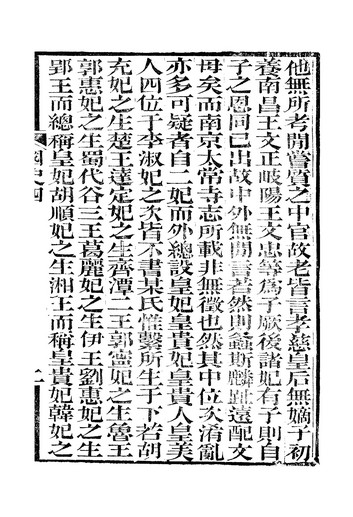 他無所考閒嘗質之中官故老皆言孝慈皇后無嫡子初
養南昌王文正岐陽王文忠等為子厥後諸妃有子則自
子之恩同已出故中外無閒言若然則螽斯麟趾遠配文
母矣而南京太常寺志所載非無徵也然其中位次淆亂
亦多可疑者自二妃而外總設皇妃皇貴妃皇貴人皇美
人四位于李淑妃之次皆不書某氏惟繫所生于下若胡
充妃之生楚王達定妃之生齊潭二王郭寧妃之生魯王
郭惠妃之生蜀代谷三王葛麗妃之生伊王劉惠妃之生
郢王而總稱皇妃胡順妃之生湘王而稱皇貴妃韓妃之
國史四 二